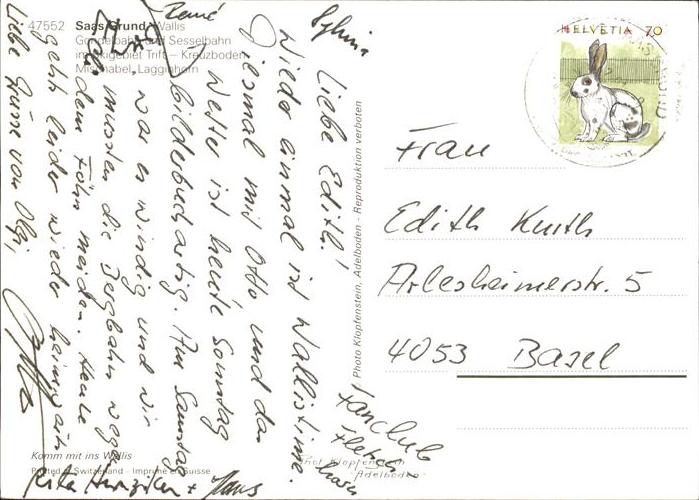 47552 Saas Grund Wallis
Gondelbahn und Sesselbahn
im Skigebiet Trift - Kreuzboden
Mischabel, Lagginhorn
HELVETIA 70
Frau
Edith Kurth
Arlesheimerstr. 5
4053 Basel
Liebe Edith!
Wieder einmal ist Wallistime.
Diesmal mit Otto und das
Wetter ist heute Sonntag
bilderbuchartig. Am Samstag
war es windig und wir
mussten die Bergbahn wegen
dem Föhn meiden. Heute
geht leider wieder heimwärts
Liebe Grüsse von Olgi,
Otto
Rita + Hans
René
Sylvia
Fanclub
Photo Klopfenstein, Adelboden - Reproduktion verboten
Komm mit ins Wallis
Printed in Switzerland - Imprimé en Suisse
Phot. Klopfenstein
Adelboden